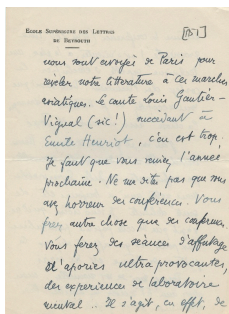 ECOLE SUPÉRIEURE DES LETTRES
DE BEYROUTH
[B1]
nous sont envoyés de Paris pour
révéler notre littérature à ces marches
asiatiques. Le comte Louis Gautier-
Vignal (sic!) succédant à
Emile Henriot, c'en est trop.
Il faut que vous veniez l'année
prochaine. Ne me dites pas que vous
avez horreur des conférences. Vous
ferez autre chose que des conférences,
vous ferez des séances d'affutage
d'apories ultra provocantes,
des expériences de laboratoire
mental... Il s'agit, en effet, de